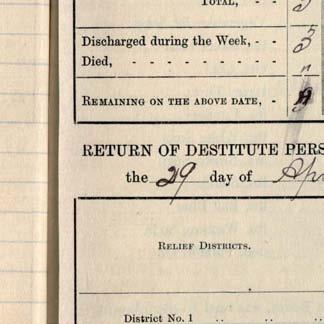 TOTAL, - - 5
Discharged during the Week, - - 5
Died, - - - - - - - - "
REMAINING ON THE ABOVE DATE, -
RETURN OF DESTITUTE PERS
the 29 day of Apr
RELIEF DISTRICTS.
District No. 1 .. .. ..